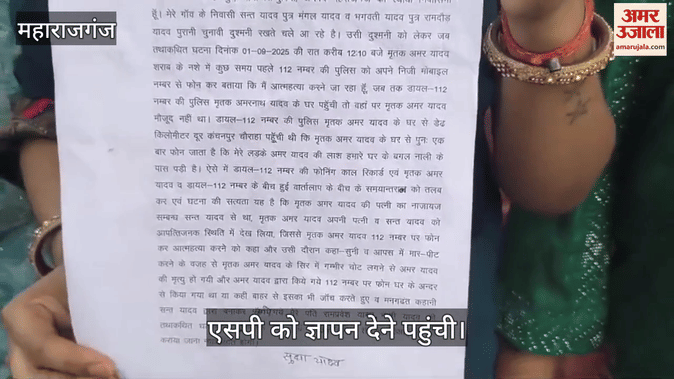 महाराजगंज
अमर
उजाला
amarujala.com
हूँ। मेरे गाँव के निवासी सन्त यादव पुत्र मंगल यादव व भगवती यादव पुत्र रामदौड़
यादव पुरानी चुनावी दुश्मनी रखते चले आ रहे है। उसी दुश्मनी को लेकर जब
तथाकथित घटना दिनांक 01-09-2025 की रात करीब 12:10 बजे मृतक अमर यादव
शराब के नशे में कुछ समय पहले 112 नम्बर की पुलिस को अपने निजी मोबाइल
नम्बर से फोन कर बताया कि मैं आत्महत्या करने जा रहा हूँ, जब तक डायल-112
नम्बर की पुलिस मृतक अमरनाथ यादव के घर पहुँची तो वहां पर मृतक अमर यादव
मौजूद नही था। डायल-112 नम्बर की पुलिस मृतक अमर यादव के घर से डेढ़
किलोमीटर दूर कंचनपुर चौराहा पहुँची थी कि मृतक अमर यादव के घर से पुनः एक
बार फोन जाता है कि मेरे लडके अमर यादव की लाश हमारे घर के बगल नाली के
पास पड़ी है। ऐसे में डायल-112 नम्बर की फोनिंग काल रिकार्ड एवं मृतक अमर
यादव व डायल-112 नम्बर के बीच हुई वार्तालाप के बीच के समयान्तराल को तलब
कर एवं घटना की सत्यता यह है कि मृतक अमर यादव की पत्नी का नाजायज
सम्बन्ध सन्त यादव से था, मृतक अमर यादव अपनी पत्नी व सन्त यादव को
आपत्तिजनक स्थिति में देख लिया, जिससे मृतक अमर यादव 112 नम्बर पर फोन
कर आत्महत्या करने को कहा और उसी दौरान कहा-सुनी व आपस में मार-पीट
करने के वजह से मृतक अमर यादव के सिर में गम्भीर चोट लगने से अमर यादव
की मृत्यु हो गयी और अमर यादव द्वारा किये गये 112 नम्बर पर फोन घर के अन्दर
से किया गया था या कही बाहर से इसका भी जाँच करते हुए व मनगढत कहानी
सन्त यादव द्वारा
तथाकथित
कराया जाना
एसपी को ज्ञापन देने पहुंची।
सुधा यादव